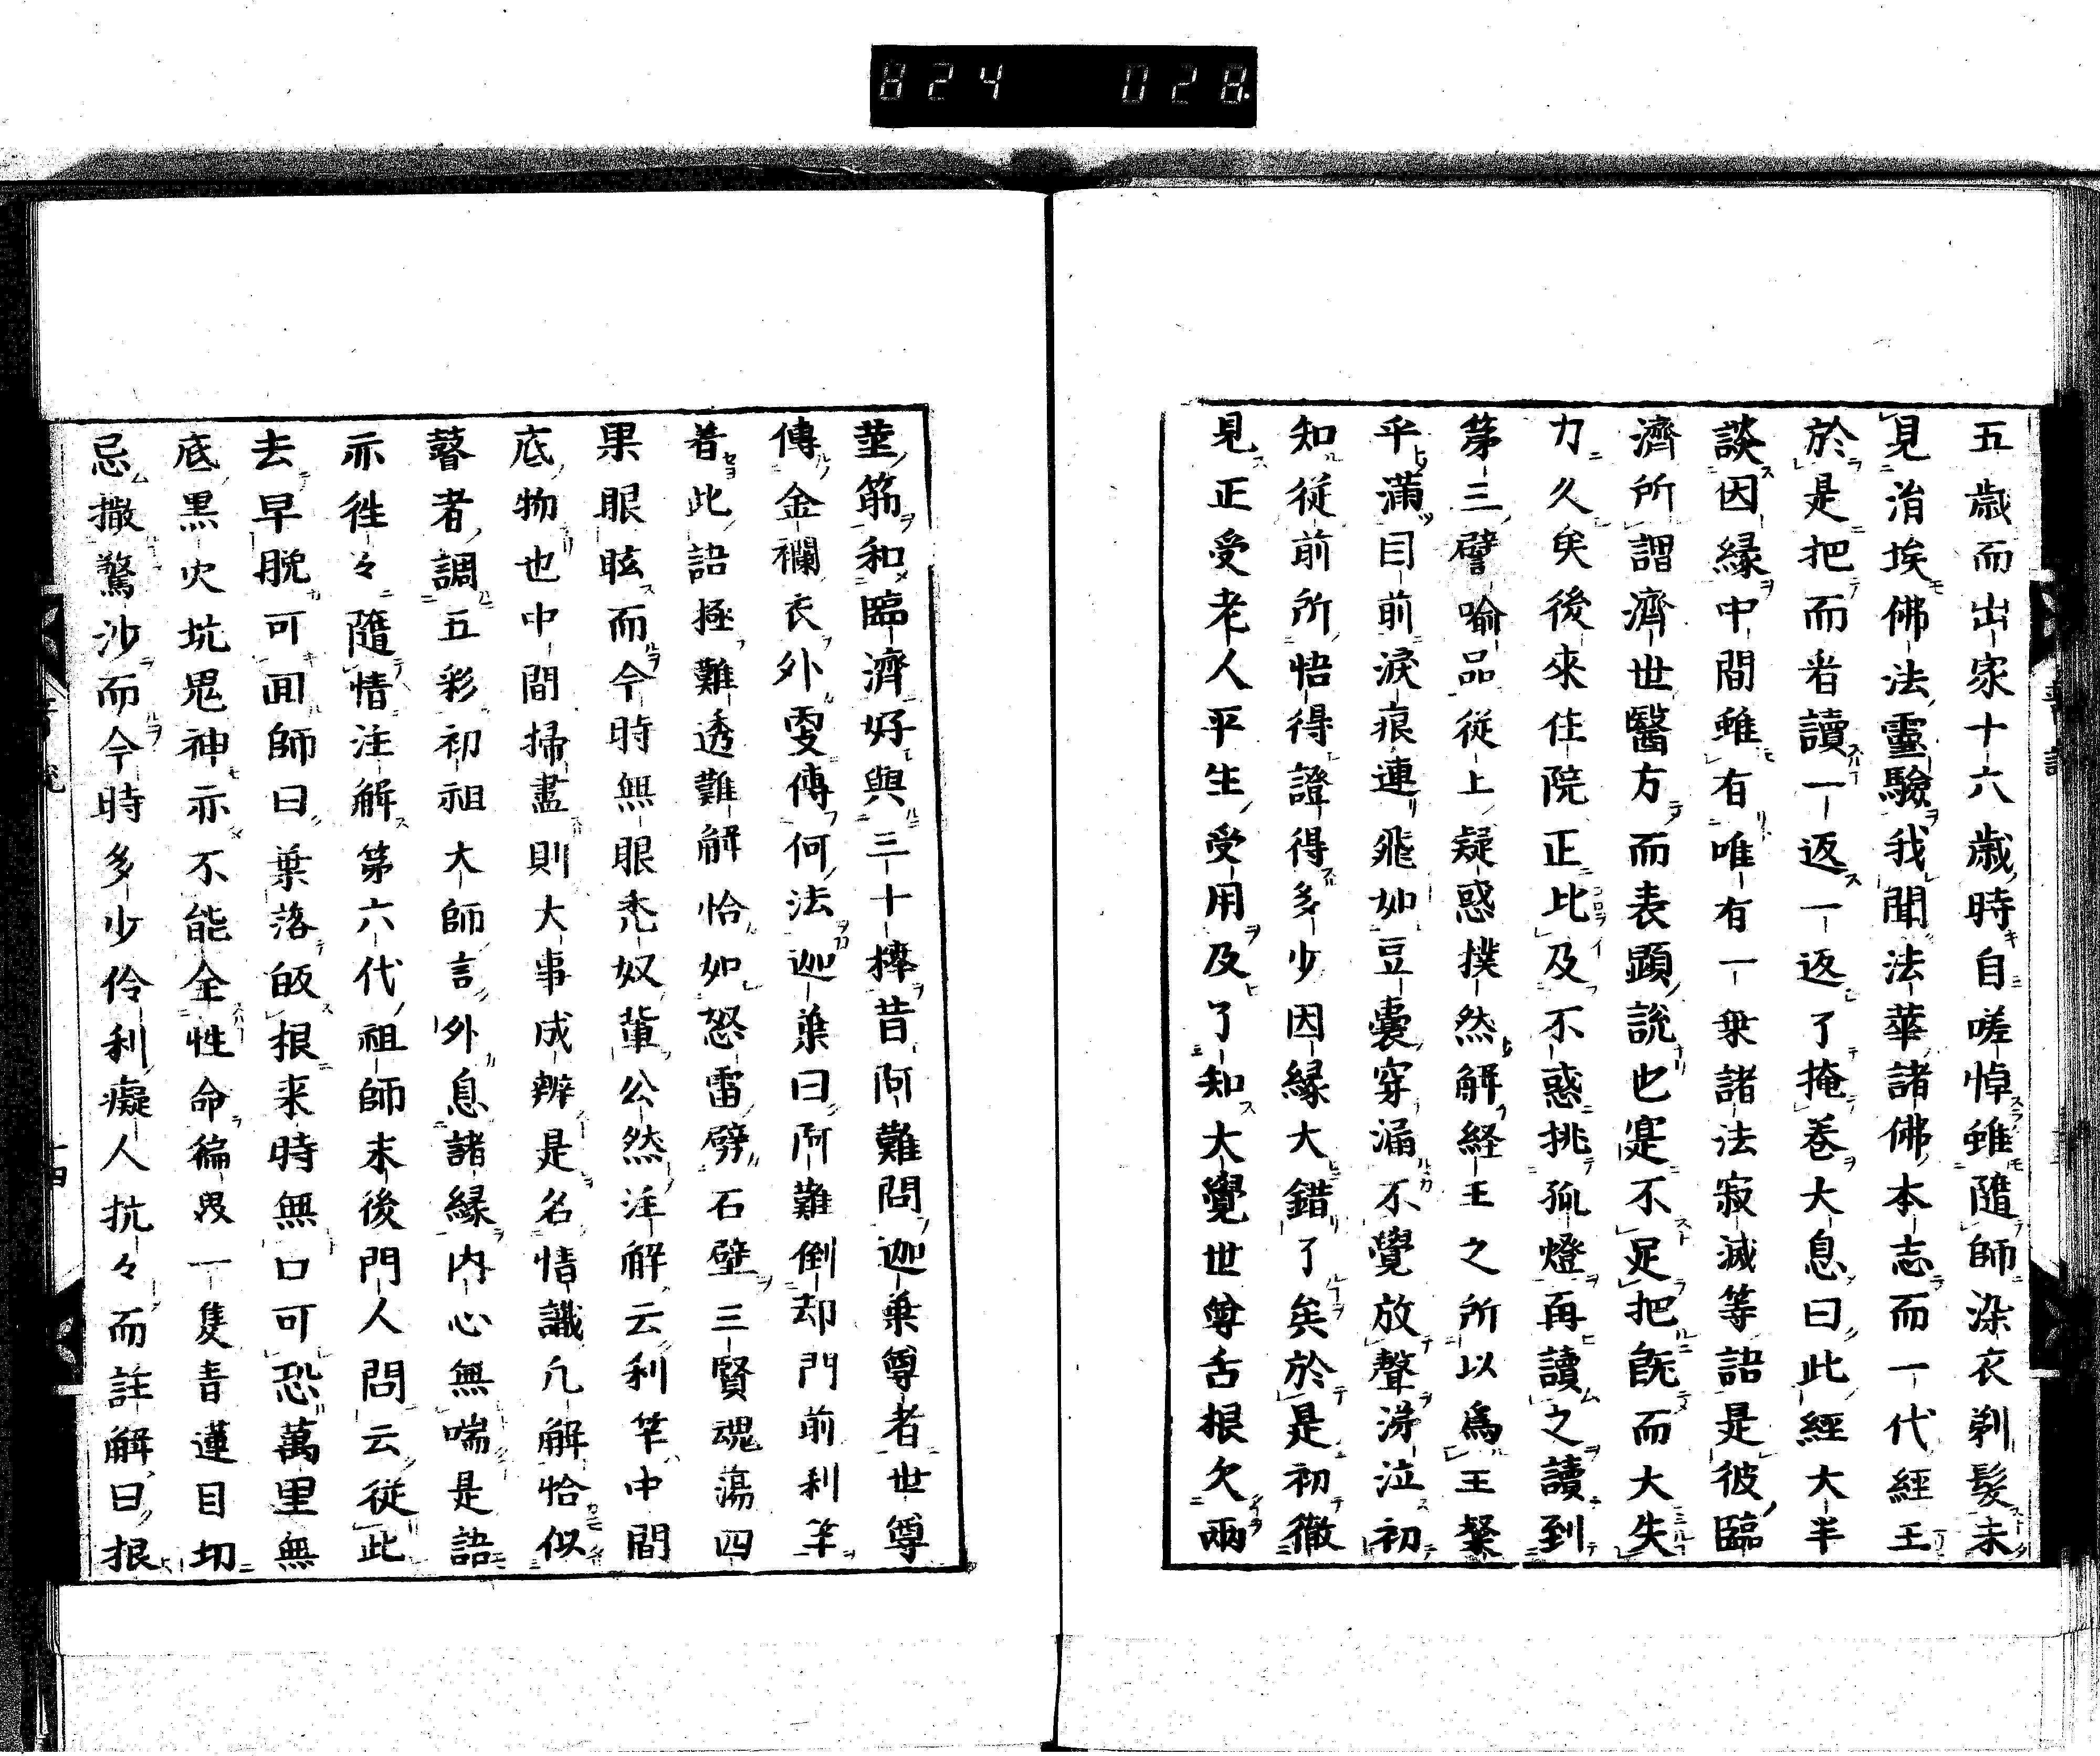 824 028.
五歳而出家十六歳時自嗟悼雖隨師染衣剃髮未
見涓埃佛法靈驗我聞法華諸佛本志而一代經王
於是把而看讀一返一返了掩巻大息曰此經大半
談因縁中間雖有唯有一乗諸法寂滅等語是彼臨
濟所謂濟世醫方而表顕說也寔不足把翫而大失
力久矣後來住院正比及不惑挑孤燈再讀之讀到
第三譬喻品従上疑惑撲然解経王之所以為王粲
乎滿目前淚痕連飛如豆嚢穿漏不覺放聲涕泣初
知従前所悟得證得多少因縁大錯了矣於是初徹
見正受老人平生受用及了知大覺世尊舌根欠兩
莖筋和臨濟好與三十棒昔阿難問迦葉尊者世尊
傳金襴衣外更傳何法迦葉曰阿難倒却門前利竿
着此語極難透難解恰如怒雷劈石壁三賢魂蕩四
果眼眩而今時無眼禿奴輩公然注解云利竿中間
底物也中間掃盡則大事成辨是名情識凢解恰似
瞽者調五彩初祖大師言外息諸縁内心無喘是語
亦徃々隨情注解第六代祖師末後門人問云従此
去早脱可囬師曰葉落皈根来時無口可恐萬里無
底黒火坑鬼神亦不能全性命徧界一隻青蓮目切
忌撒驚沙而今時多少伶利癡人抗々而註解曰根